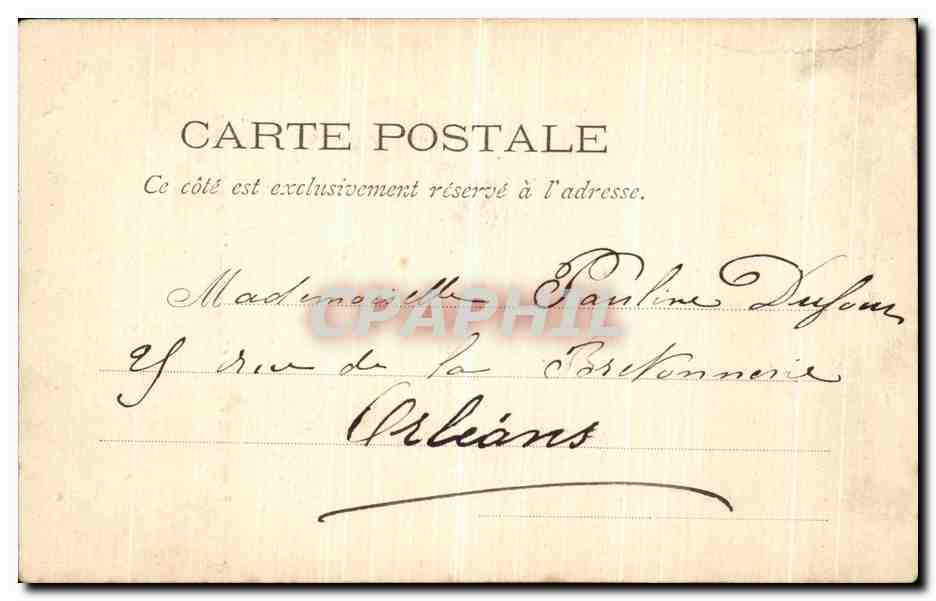 CARTE POSTALE
Ce côté est exclusivement réservé à l'adresse.
Mademoiselle Pauline Dufour
CPAPHIL
25 rue de la Bretonnerie
Orléans